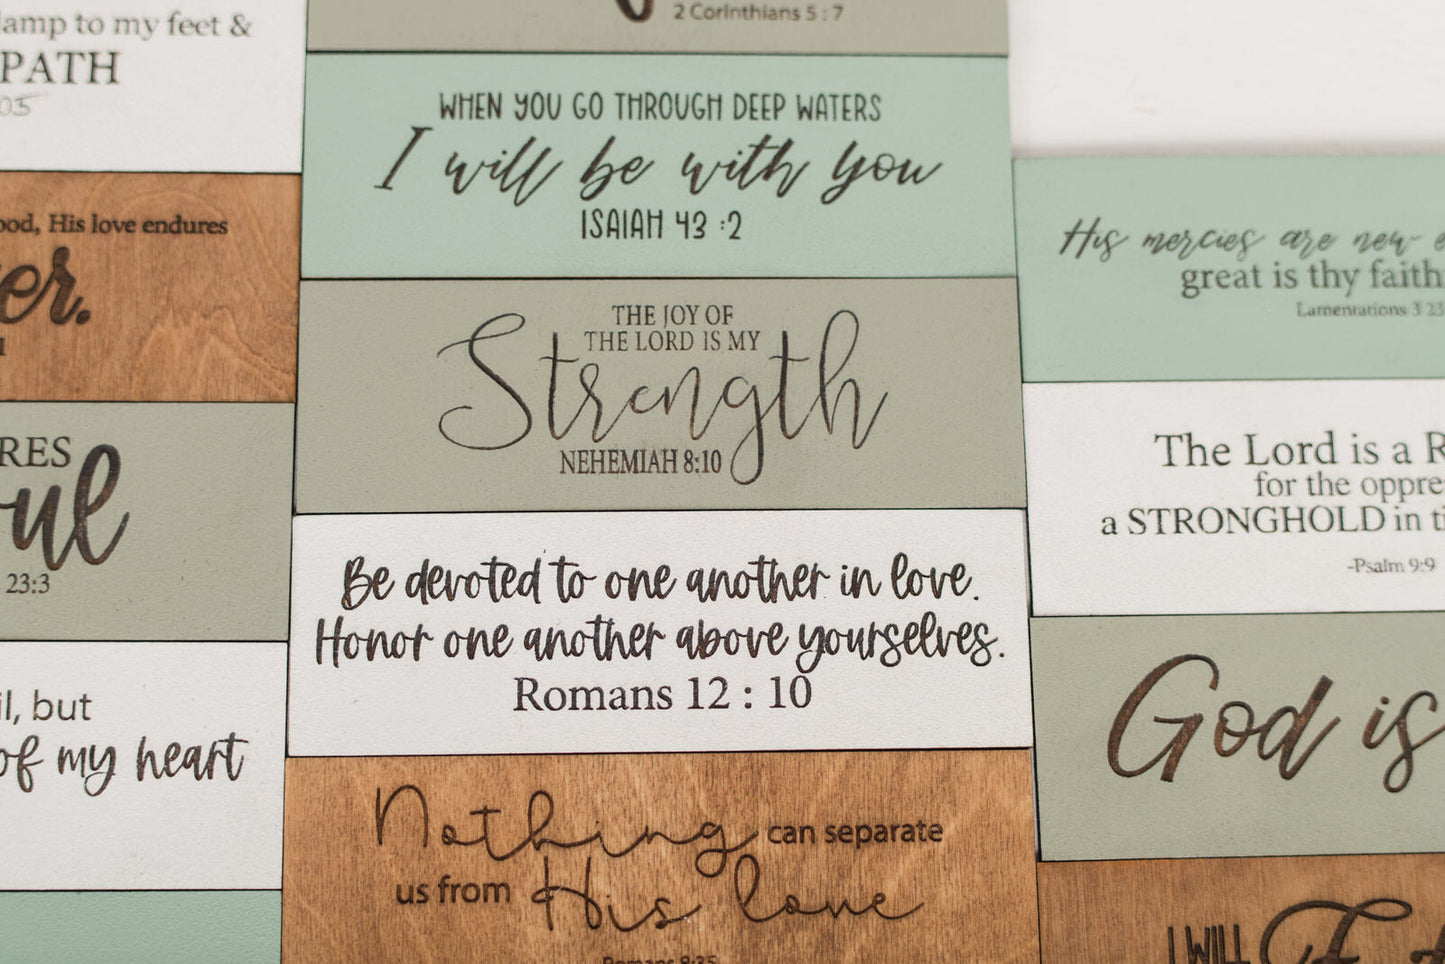 lamp to my feet &
PATH
05
His love endures
er.
1
RES
ul
23:3
but
of my heart
2 Corinthians 5 : 7
WHEN YOU GO THROUGH DEEP WATERS
I will be with you
ISAIAH 43 :2
THE JOY OF
THE LORD IS MY
Strength
NEHEMIAH 8:10
Be devoted to one another in love.
Honor one another above yourselves.
Romans 12 : 10
Nothing can separate
us from His love
Romans 8:35
His mercies are new
great is thy faith
Lamentations 3 23
The Lord is a R
for the oppre
a STRONGHOLD in ti
-Psalm 9:9
God is
I WILL